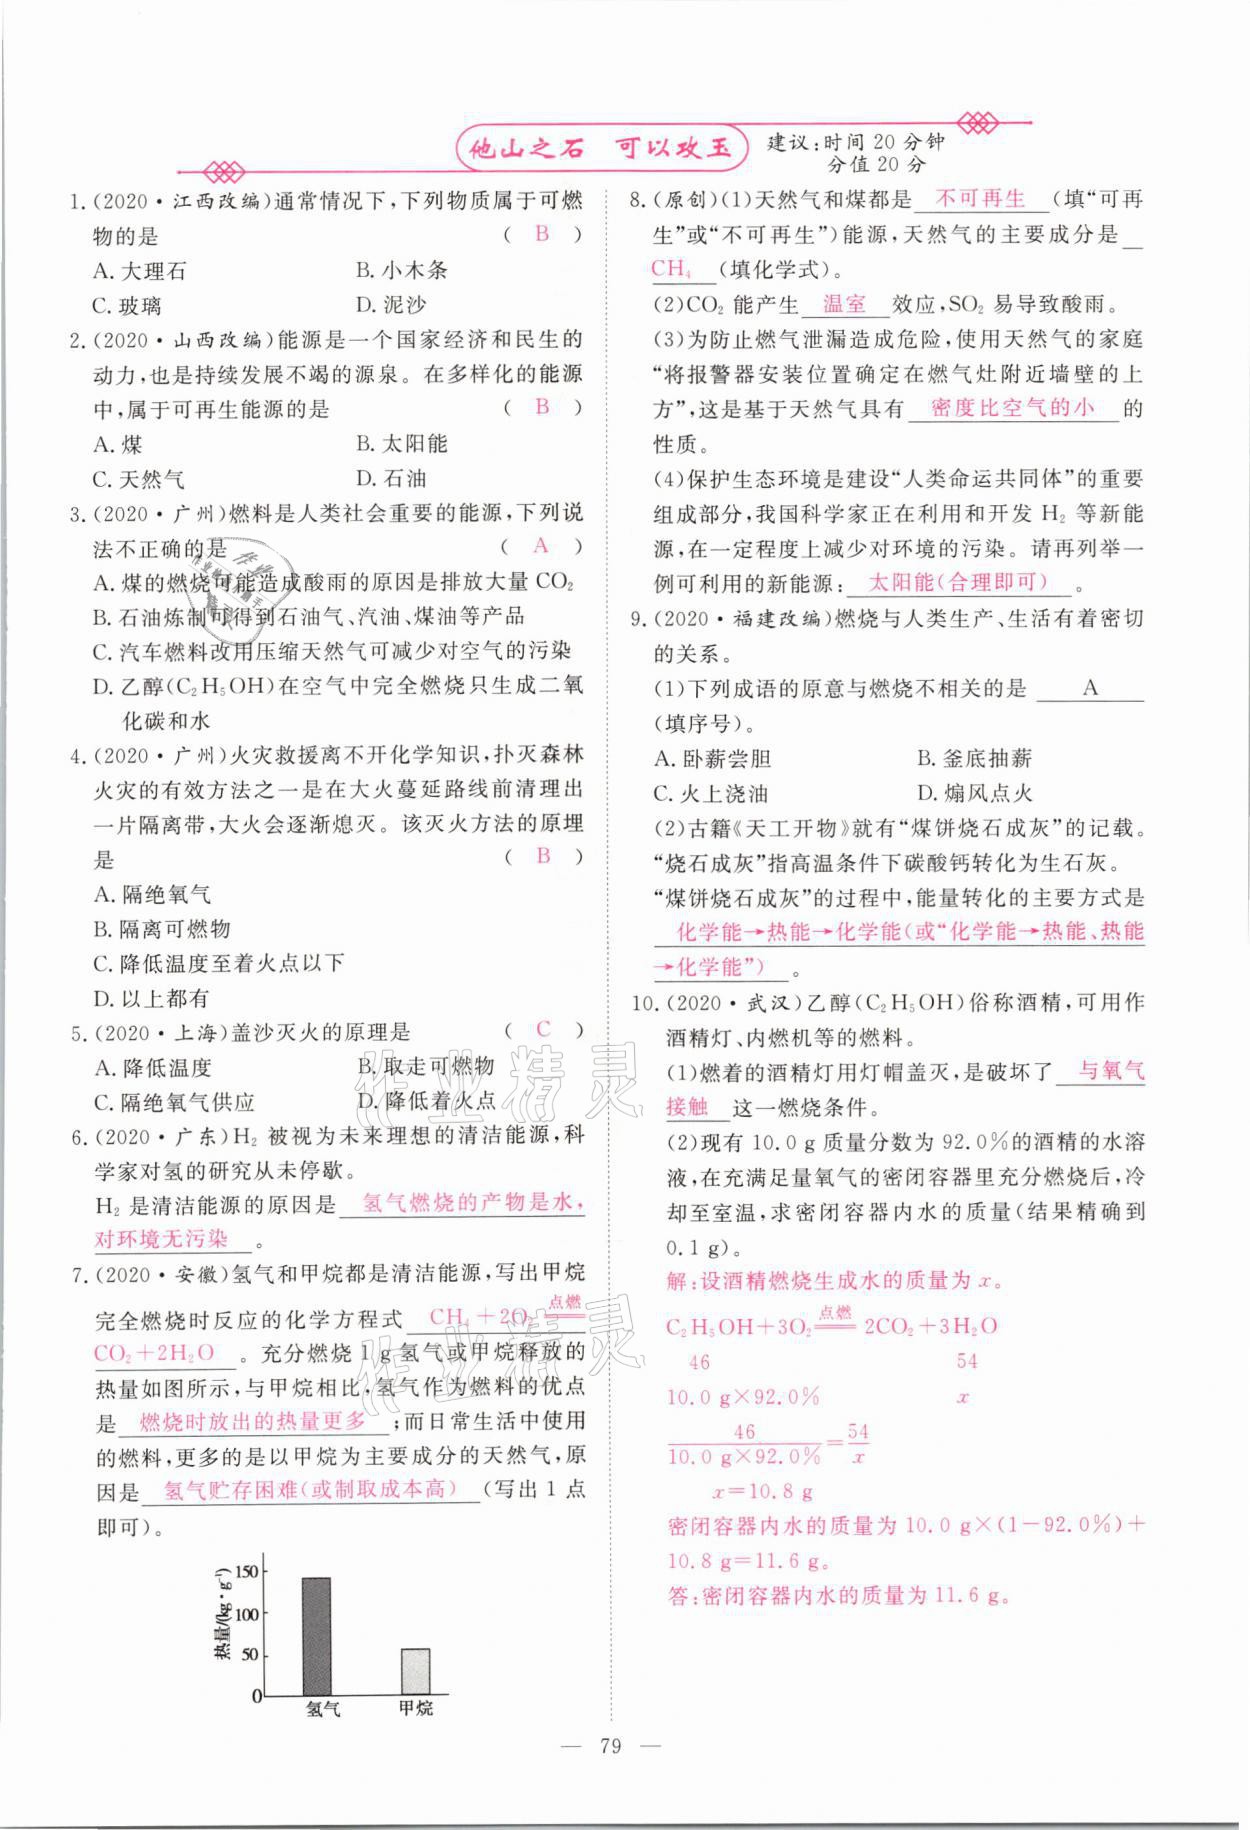 他山之石 可以攻玉
建议:时间 20 分钟
分值 20 分
1. (2020·江西改编)通常情况下,下列物质属于可燃
物的是 ( B )
A. 大理石 B. 小木条
C. 玻璃 D. 泥沙
2. (2020·山西改编)能源是一个国家经济和民生的
动力,也是持续发展不竭的源泉。在多样化的能源
中,属于可再生能源的是 ( B )
A. 煤 B. 太阳能
C. 天然气 D. 石油
3. (2020·广州)燃料是人类社会重要的能源,下列说
法不正确的是 ( A )
A. 煤的燃烧可能造成酸雨的原因是排放大量 CO₂
B. 石油炼制可得到石油气、汽油、煤油等产品
C. 汽车燃料改用压缩天然气可减少对空气的污染
D. 乙醇(C₂H₅OH)在空气中完全燃烧只生成二氧
化碳和水
4. (2020·广州)火灾救援离不开化学知识,扑灭森林
火灾的有效方法之一是在大火蔓延路线前清理出
一片隔离带,大火会逐渐熄灭。该灭火方法的原理
是 ( B )
A. 隔绝氧气
B. 隔离可燃物
C. 降低温度至着火点以下
D. 以上都有
5. (2020·上海)盖沙灭火的原理是 ( C )
A. 降低温度 B. 取走可燃物
C. 隔绝氧气供应 D. 降低着火点
6. (2020·广东)H₂ 被视为未来理想的清洁能源,科
学家对氢的研究从未停歇。
H₂ 是清洁能源的原因是 氢气燃烧的产物是水,
对环境无污染 。
7. (2020·安徽)氢气和甲烷都是清洁能源,写出甲烷
完全燃烧时反应的化学方程式 CH₄+2O₂ 点燃══
CO₂+2H₂O 。充分燃烧 1 g 氢气或甲烷释放的
热量如图所示,与甲烷相比,氢气作为燃料的优点
是 燃烧时放出的热量更多 ;而日常生活中使用
的燃料,更多的是以甲烷为主要成分的天然气,原
因是 氢气贮存困难(或制取成本高) (写出 1 点
即可)。
热量/(kg·g⁻¹)
150
100
50
0
氢气 甲烷
8. (原创)(1)天然气和煤都是 不可再生 (填“可再
生”或“不可再生”)能源,天然气的主要成分是
CH₄ (填化学式)。
(2)CO₂ 能产生 温室 效应,SO₂ 易导致酸雨。
(3)为防止燃气泄漏造成危险,使用天然气的家庭
“将报警器安装位置确定在燃气灶附近墙壁的上
方”,这是基于天然气具有 密度比空气的小 的
性质。
(4)保护生态环境是建设“人类命运共同体”的重要
组成部分,我国科学家正在利用和开发 H₂ 等新能
源,在一定程度上减少对环境的污染。请再列举一
例可利用的新能源: 太阳能(合理即可) 。
9. (2020·福建改编)燃烧与人类生产、生活有着密切
的关系。
(1)下列成语的原意与燃烧不相关的是 A
(填序号)。
A. 卧薪尝胆 B. 釜底抽薪
C. 火上浇油 D. 煽风点火
(2)古籍《天工开物》就有“煤饼烧石成灰”的记载。
“烧石成灰”指高温条件下碳酸钙转化为生石灰。
“煤饼烧石成灰”的过程中,能量转化的主要方式是
化学能→热能→化学能(或“化学能→热能、热能
→化学能”) 。
10. (2020·武汉)乙醇(C₂H₅OH)俗称酒精,可用作
酒精灯、内燃机等的燃料。
(1)燃着的酒精灯用灯帽盖灭,是破坏了 与氧气
接触 这一燃烧条件。
(2)现有 10.0 g 质量分数为 92.0%的酒精的水溶
液,在充满足量氧气的密闭容器里充分燃烧后,冷
却至室温,求密闭容器内水的质量(结果精确到
0.1 g)。
解:设酒精燃烧生成水的质量为 x。
C₂H₅OH+3O₂ 点燃══ 2CO₂+3H₂O
46 54
10.0 g×92.0% x
46/(10.0 g×92.0%)=54/x
x=10.8 g
密闭容器内水的质量为 10.0 g×(1-92.0%)+
10.8 g=11.6 g。
答:密闭容器内水的质量为 11.6 g。
作业精灵
作业精灵
— 79 —